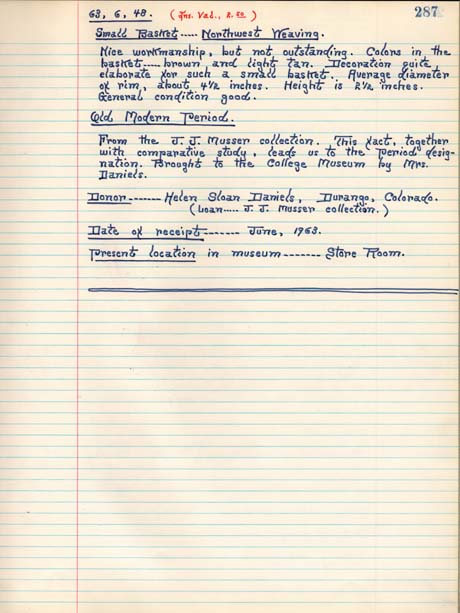 287
63, 6, 48. (Ins. Val., 2.50)
Small Basket----- Northwest Weaving.
Nice workmanship, but not outstanding. Colors in the
basket----- brown and light tan. Decoration quite
elaborate for such a small basket. Average diameter
of rim, about 4½ inches. Height is 2½ inches.
General condition good.
Old Modern Period.
From the J. J. Musser collection. This fact, together
with comparative study, leads us to the period desig-
nation. Brought to the College Museum by Mrs.
Daniels.
Donor------- Helen Sloan Daniels, Durango, Colorado.
(Loan---- J. J. Musser collection.)
Date of receipt------- June, 1963.
Present location in museum------- Store Room.